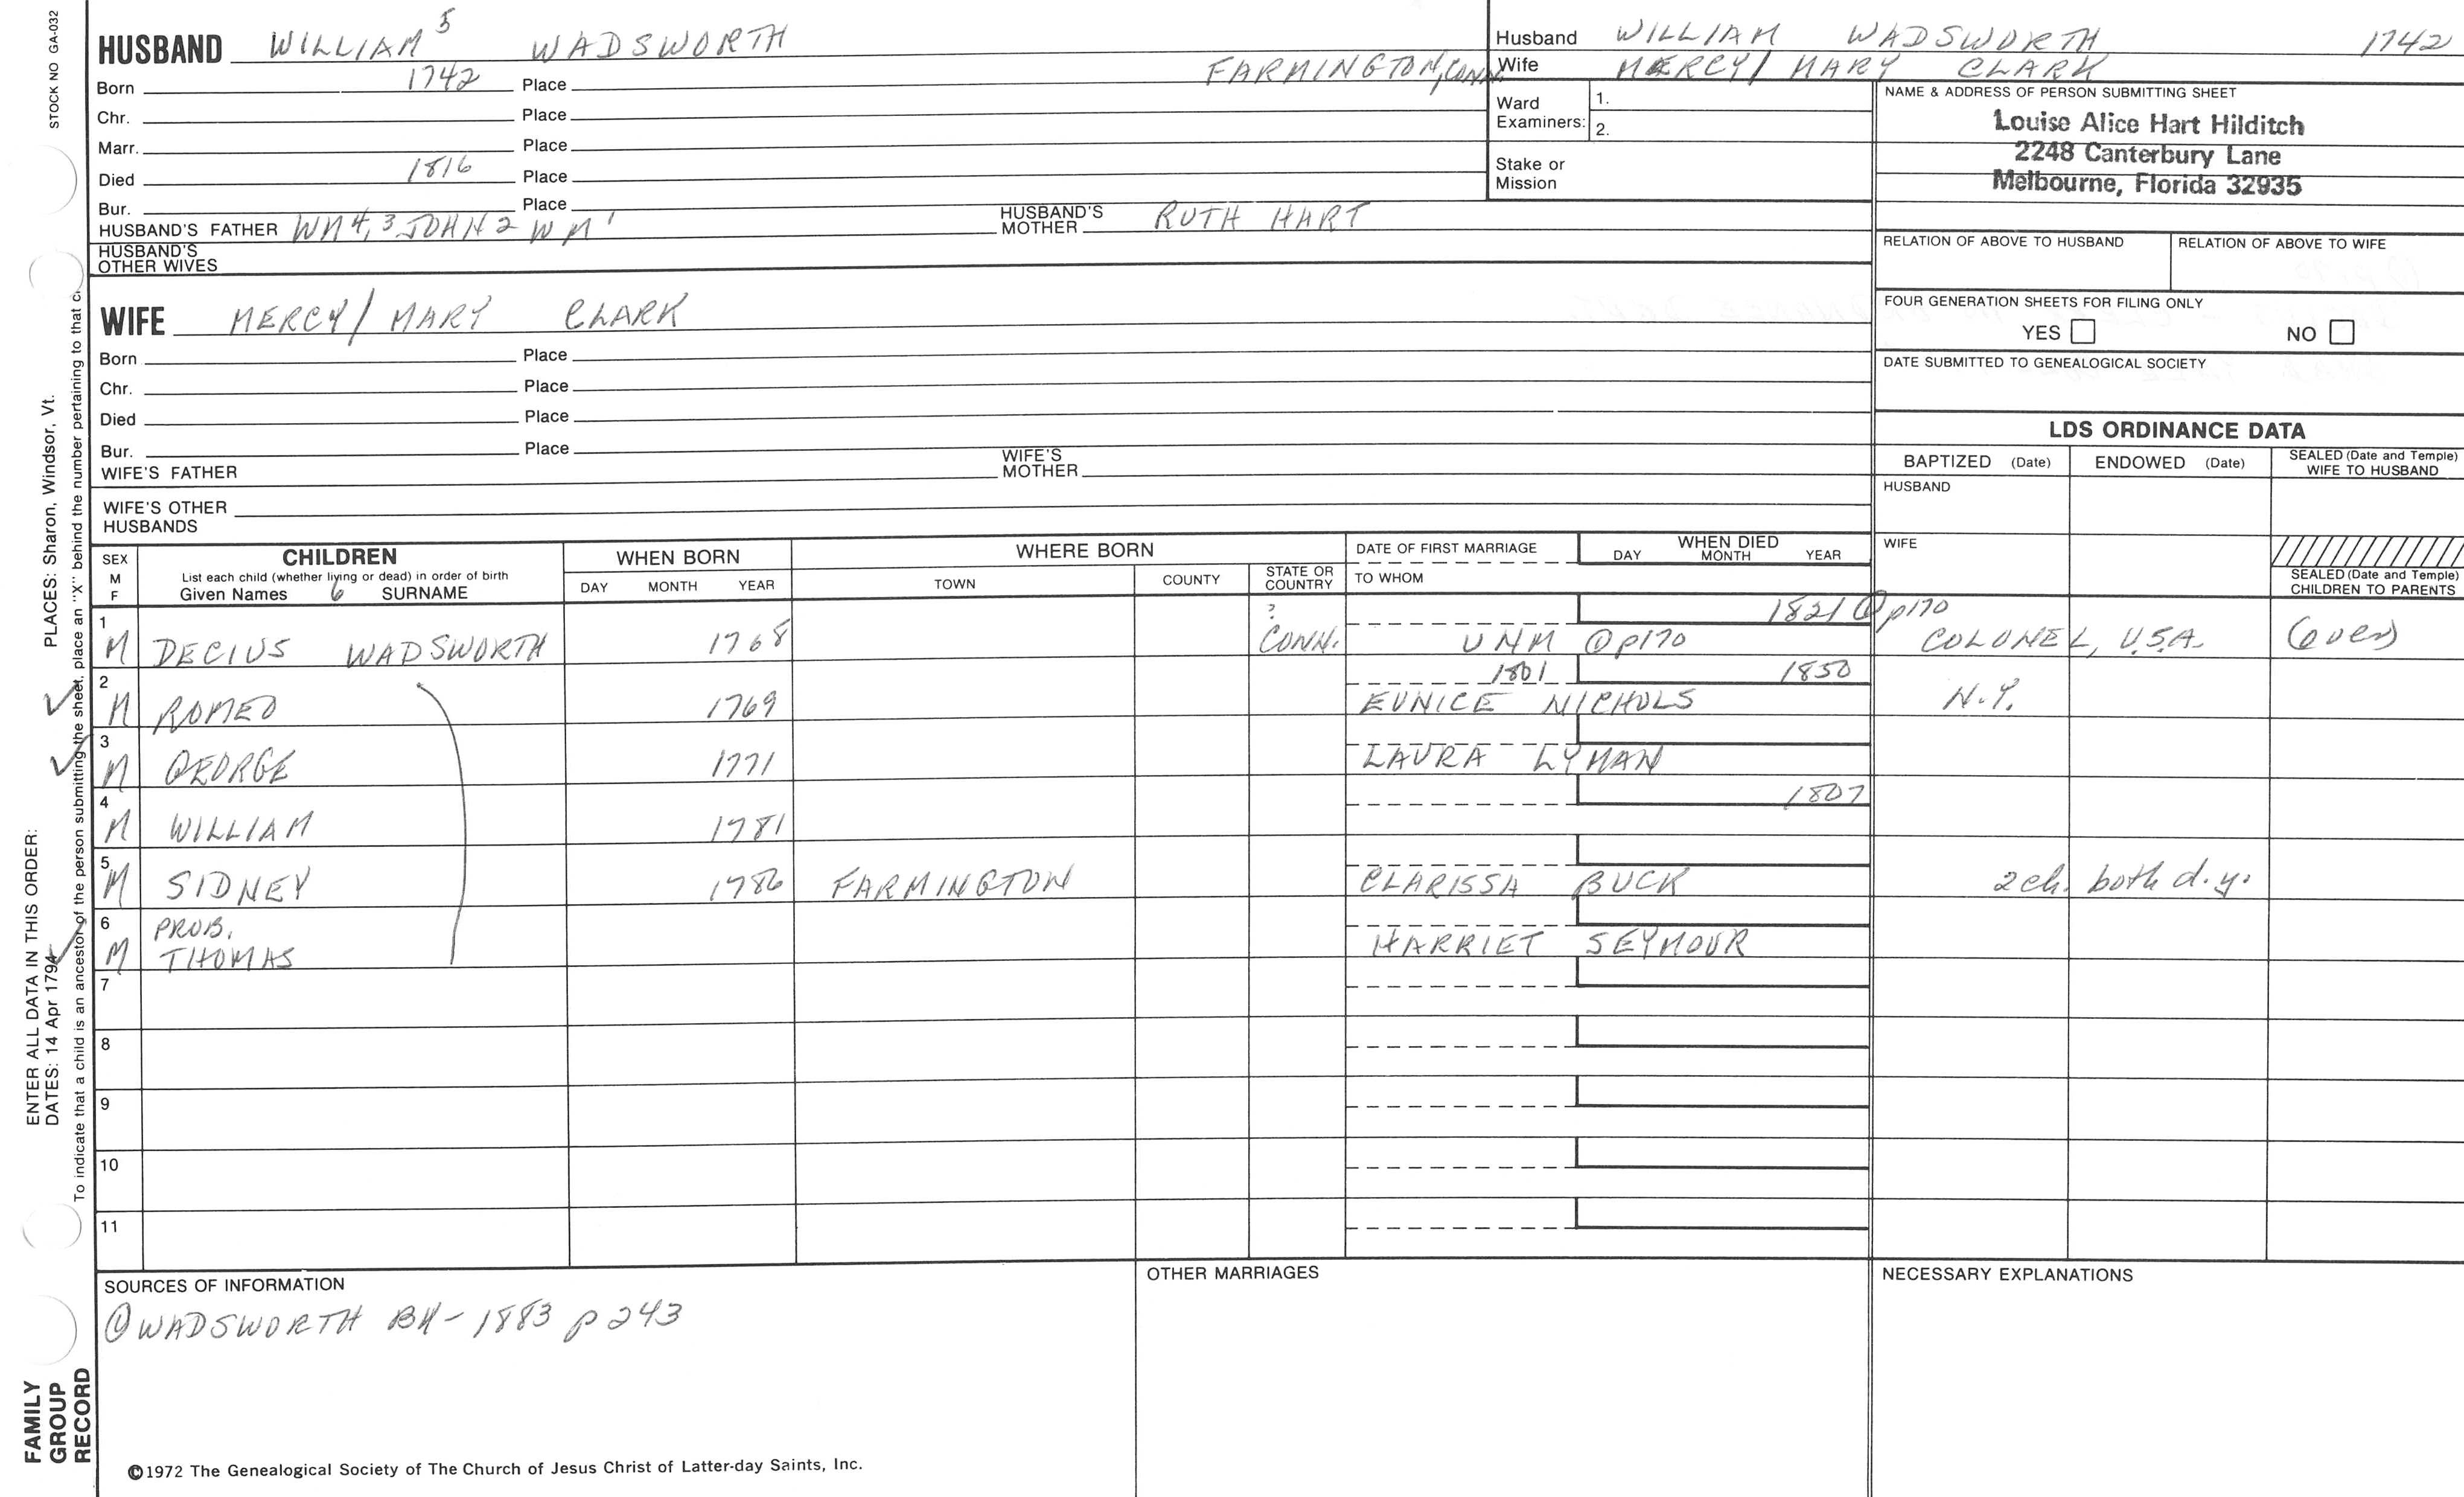 STOCK NO GA-032
HUSBAND WILLIAM 5 WADSWORTH
Born 1742 Place FARMINGTON, CONN.
Chr. Place
Marr. Place
Died 1816 Place
Bur. Place
HUSBAND'S FATHER WM 4, 3 JOHN 2 WM 1 HUSBAND'S MOTHER RUTH HART
HUSBAND'S OTHER WIVES
Husband WILLIAM WADSWORTH 1742
Wife MERCY/MARY CLARK
Ward Examiners: 1.
2.
Stake or Mission
NAME & ADDRESS OF PERSON SUBMITTING SHEET
Louise Alice Hart Hilditch
2248 Canterbury Lane
Melbourne, Florida 32935
RELATION OF ABOVE TO HUSBAND RELATION OF ABOVE TO WIFE
FOUR GENERATION SHEETS FOR FILING ONLY
YES NO
DATE SUBMITTED TO GENEALOGICAL SOCIETY
WIFE MERCY/MARY CLARK
Born Place
Chr. Place
Died Place
Bur. Place
WIFE'S FATHER WIFE'S MOTHER
WIFE'S OTHER HUSBANDS
LDS ORDINANCE DATA
BAPTIZED (Date) ENDOWED (Date) SEALED (Date and Temple) WIFE TO HUSBAND
HUSBAND
WIFE
SEALED (Date and Temple) CHILDREN TO PARENTS
SEX M F
CHILDREN
List each child (whether living or dead) in order of birth
Given Names 6 SURNAME
WHEN BORN
DAY MONTH YEAR
WHERE BORN
TOWN COUNTY STATE OR COUNTRY
DATE OF FIRST MARRIAGE
TO WHOM
WHEN DIED
DAY MONTH YEAR
1 M DECIUS WADSWORTH 1768 ? CONN. UNM @p170 1821 @p170 COLONEL, U.S.A. (over)
2 M ROMEO 1769 1801 EUNICE NICHOLS 1850 N.Y.
3 M GEORGE 1771 LAURA LYMAN
4 M WILLIAM 1781 1807
5 M SIDNEY 1786 FARMINGTON CLARISSA BUCK 2 ch. both d.y.
6 M PROB. THOMAS HARRIET SEYMOUR
7
8
9
10
11
SOURCES OF INFORMATION
① WADSWORTH BK - 1883 p 243
OTHER MARRIAGES
NECESSARY EXPLANATIONS
©1972 The Genealogical Society of The Church of Jesus Christ of Latter-day Saints, Inc.
FAMILY
GROUP
RECORD
ENTER ALL DATA IN THIS ORDER:
DATES: 14 Apr 1794 PLACES: Sharon, Windsor, Vt.
To indicate that a child is an ancestor of the person submitting the sheet, place an "X" behind the number pertaining to that